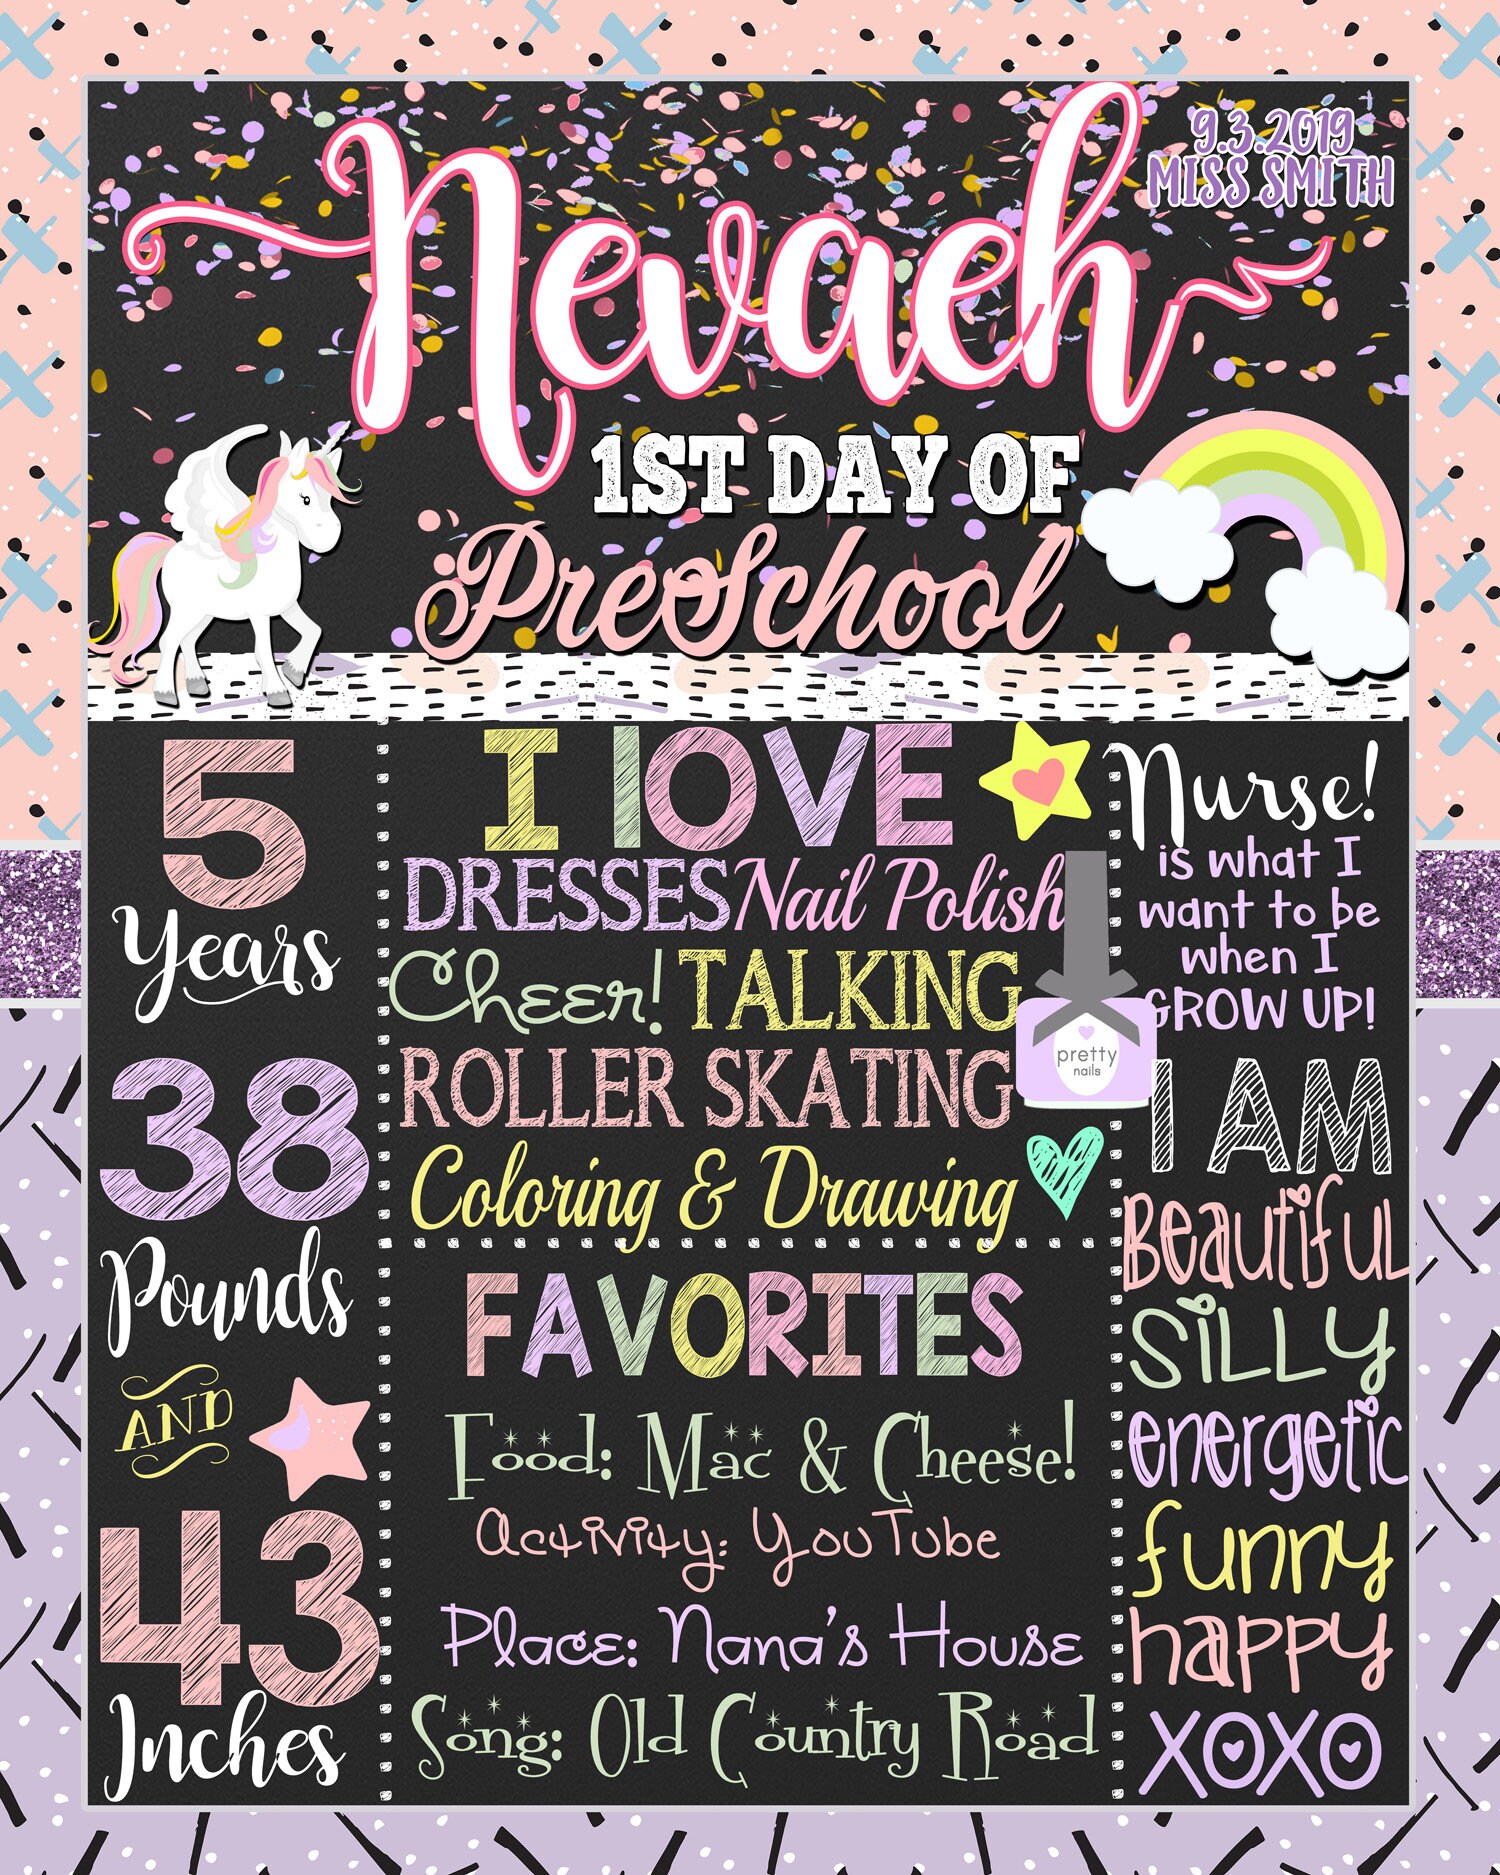 9.3.2019
MISS SMITH
Nevaeh
1ST DAY OF
PreSchool
5
Years
38
Pounds
AND
43
Inches
I lOVE
DRESSES Nail Polish
Cheer! TALKING
ROLLER SKATING
Coloring & Drawing
pretty
nails
FAVORITES
Food: Mac & Cheese!
Activity: YouTube
Place: Nana's House
Song: Old Country Road
Nurse!
is what I
want to be
when I
GROW UP!
I AM
Beautiful
Silly
energetic
funny
happy
XOXO